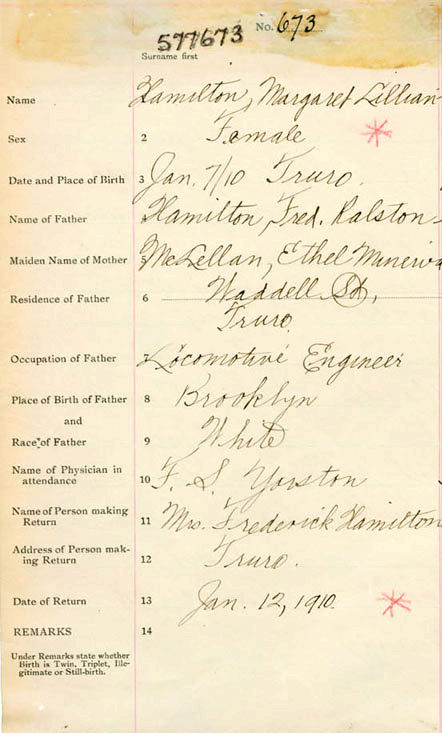 No. 673
577673
Surname first
Name Hamilton, Margaret Lillian
Sex 2 Female
Date and Place of Birth 3 Jan. 7/10 Truro.
Name of Father Hamilton, Fred. Ralston
Maiden Name of Mother 5 McLellan, Ethel Minerva
Residence of Father 6 Waddell St,
Truro.
Occupation of Father 7 Locomotive Engineer
Place of Birth of Father 8 Brooklyn
and
Race of Father 9 White
Name of Physician in
attendance 10 F. S. Yorston
Name of Person making
Return 11 Mrs. Frederick Hamilton
Address of Person mak-
ing Return 12 Truro.
Date of Return 13 Jan. 12, 1910.
REMARKS 14
Under Remarks state whether
Birth is Twin, Triplet, Ille-
gitimate or Still-birth.